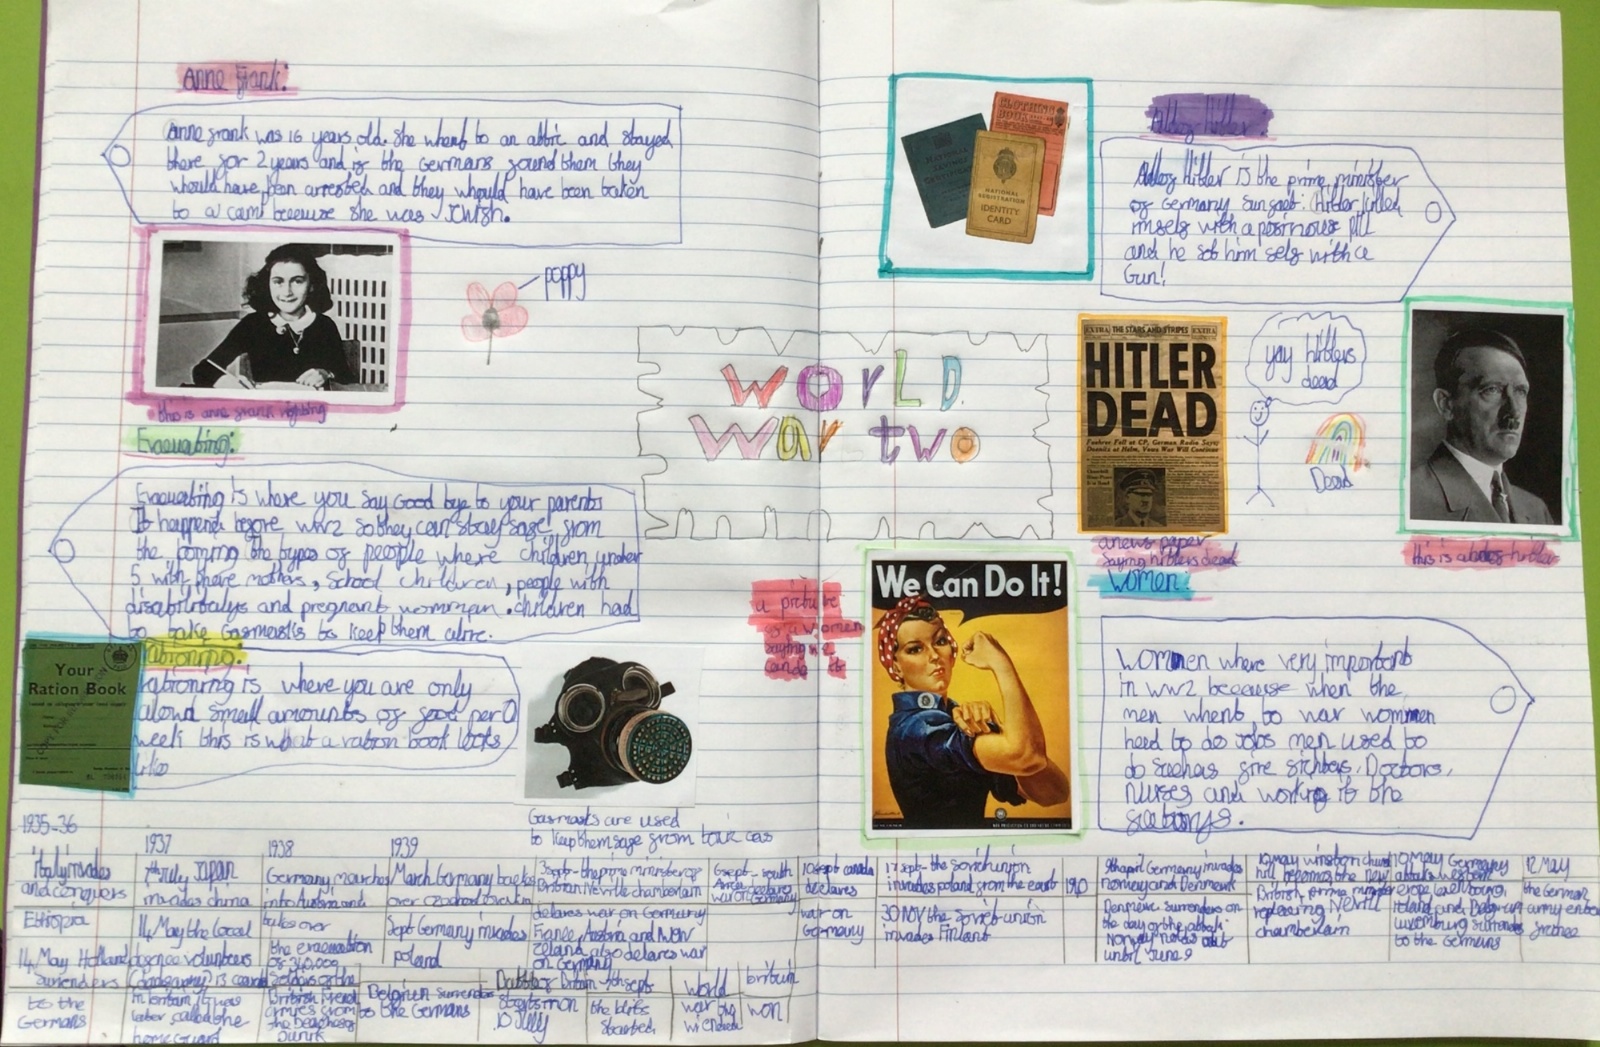 Anne Frank:
Anne Frank was 16 years old. She whent to an attic and stayed
there for 2 years and if the Germans found them they
whould have ben arrested and they whould have been taken
to a camp because she was Jewish.
poppy
this is anne frank righting
Evacuating:
Evacuating is where you say Good bye to your parents
It happend before ww2 so they can stay safe from
the boming the types of people where children under
5 with there mothers, School children, people with
and pregnant wommen. children had
to take Gasmasks to keep them alive.
Rationing:
Rationing is where you are only
alowd small amounts of food per
week this is what a ration book looks
like
Your
Ration Book
Gasmasks are used
to keep them safe from toxic gas
WorLD
War two
NATIONAL
SAVINGS
CLOTHING
BOOK
NATIONAL
REGISTRATION
IDENTITY
CARD
Hitler:
Hitler is the prime minister
of Germany fun fact: Hitler killed
himself with a pill
and he sot him self with a
Gun!
EXTRA THE STARS AND STRIPES EXTRA
HITLER
DEAD
Fuehrer Fell at CP, German Radio Says;
Doenitz at Helm, Vows War Will Continue
yay hitlers
dead
Dead
a news paper
saying hitlers dead
this is hitler
Women:
Women where very important
in ww2 because when the
men whent to war wommen
had to do jobs men used to
do such as fire fighters, Doctors,
Nurses and working in the
We Can Do It!
a picture
of a women
saying we
can do it
1935-36
Italy invades
and conquers
Ethiopia
14 May Holland
surrenders
to the
Germans
1937
7th July JAPAN
invades china
14 May the local
defence volunteers
is created
in britain it was
later called the
home Guard
1938
Germany marches
into Austria and
takes over
the evacuation
of 340,000
Soldiers of the
British french
armies from
the beaches of
Dunkirk
1939
March Germany takes
over
Sept Germany invades
poland
Belgium surrenders
to the Germans
3 sept- the prime minister of
Britain Neville chamberlain
declares war on Germany
France, Austria and New
Zeland also declares war
on Germany
Battle of Britain
starts on
10 July
7 sept
the blitz
started
6 sept- south
Africa declares
war on Germany
World
war two
ended
britain
won
10 sept canada
declares
war on
Germany
17 sept- the soviet union
invades poland from the east
30 NOV the Soviet union
invades Finland
1940
9th april Germany invades
norway and Denmark
Denmark surrenders on
the day of the attack
Norway holds out
until June 9
10 May winston church
hill becomes the new
British prime minister
replacing Nevill
chamberlain
10 May Germany
attacks western
europe Luxembourg,
Holand and Belgium
Luxemburg surrenders
to the Germans
12 May
the German
army enters
france